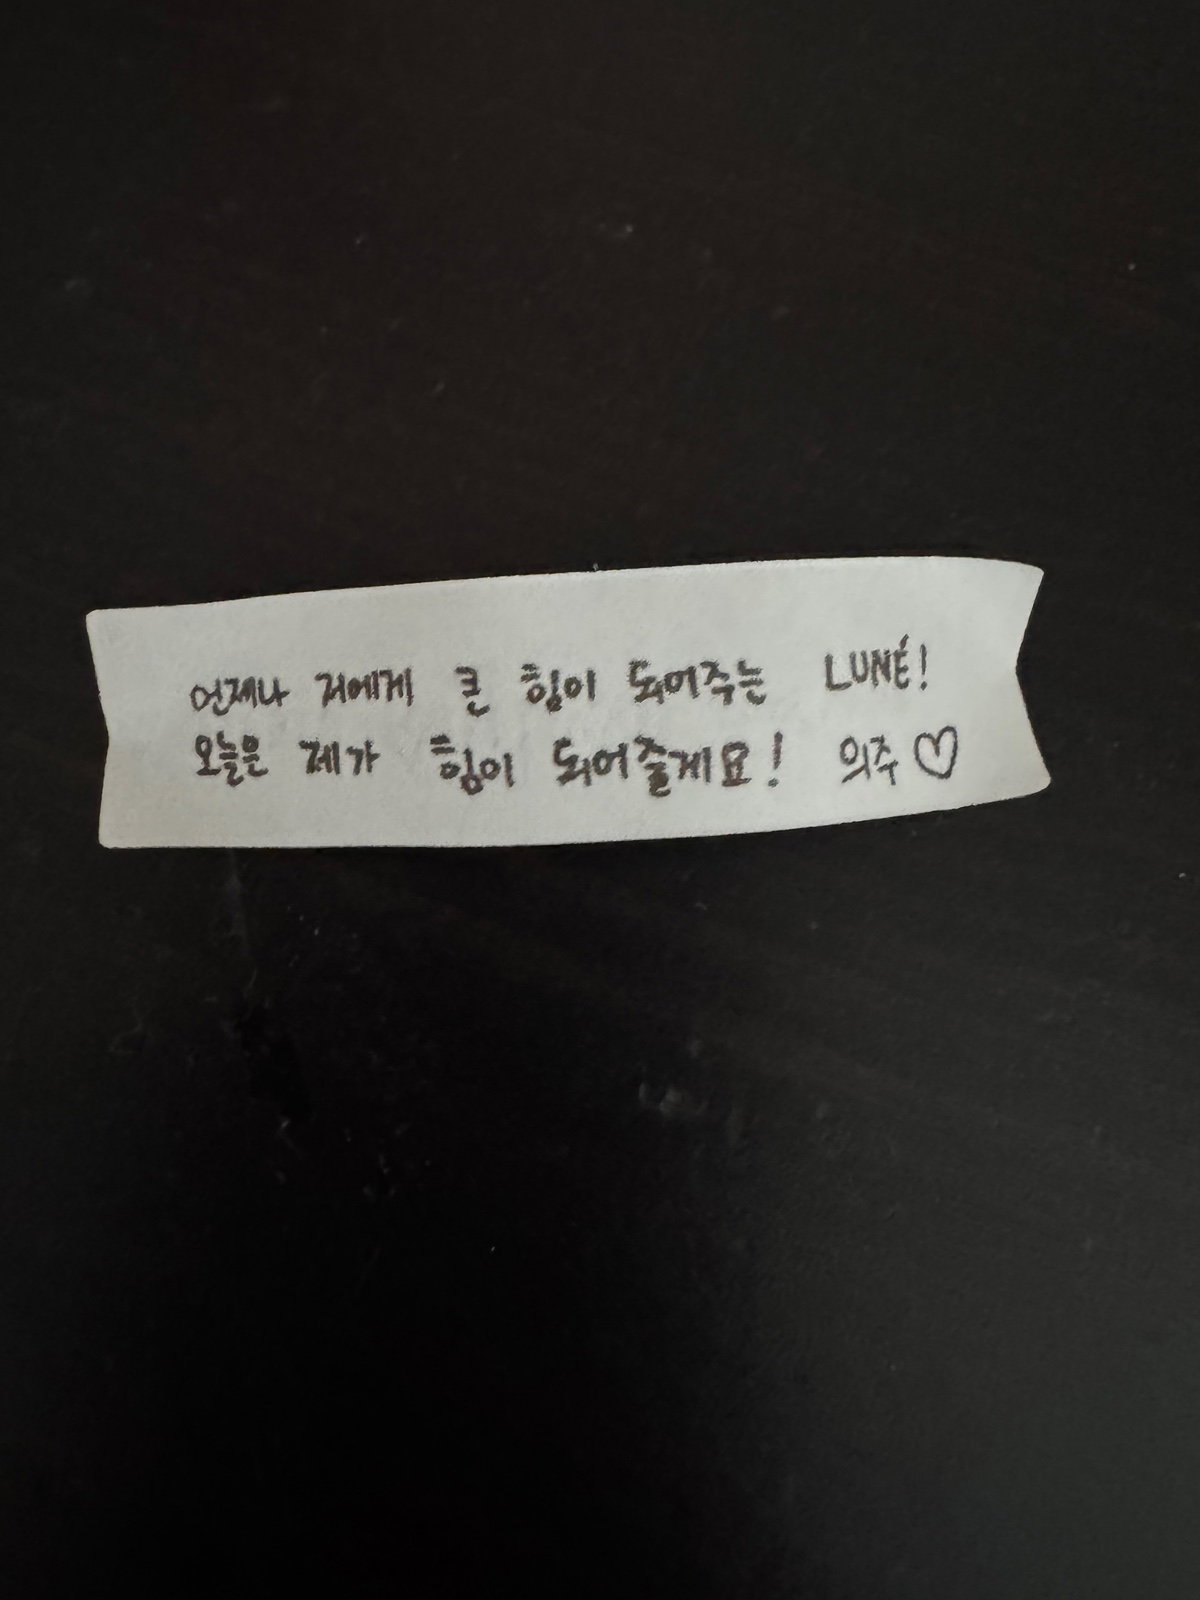 언제나 저에게 큰 힘이 되어주는 LUNÉ!
오늘은 제가 힘이 되어줄게요! 의주♡